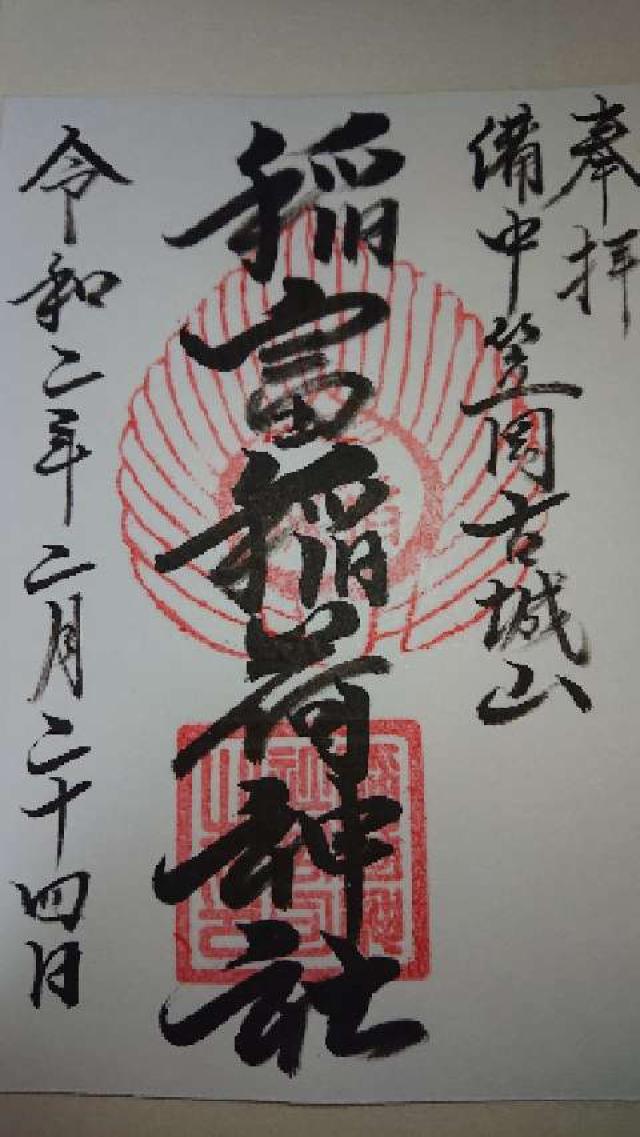 奉拝
備中笠岡古城山
稲富稲荷神社
令和二年二月二十四日